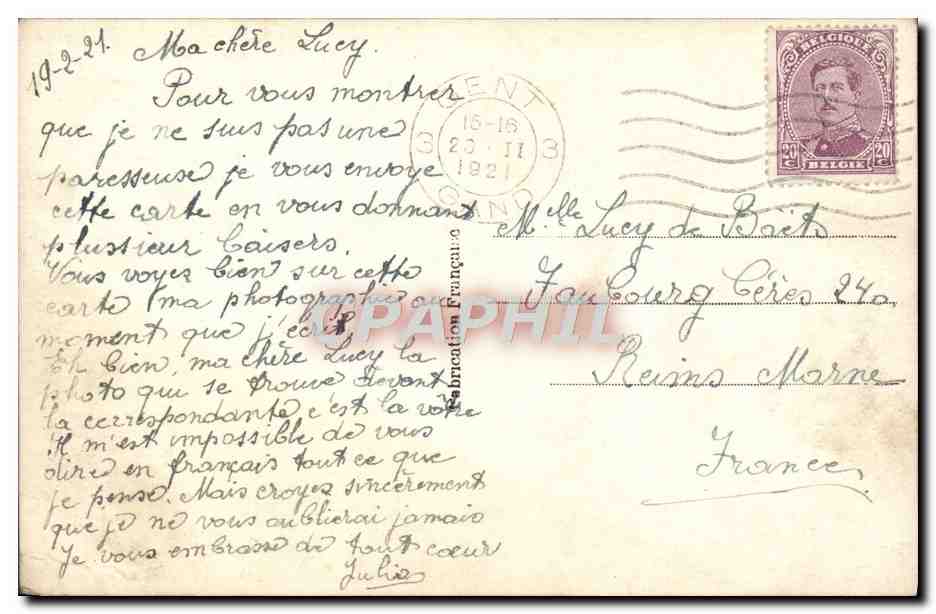 19-2-21.
Ma chère Lucy.
Pour vous montrer
que je ne suis pas une
paresseuse je vous envoye
cette carte en vous donnant
plussieur baisers.
Vous voyez bien sur cette
carte ma photographie au
moment que j'écrit,
Eh bien, ma chère Lucy la
photo qui se trouve devant
la cerrespondante c'est la vôtre
Il m'est impossible de vous
dire en français tout ce que
je pense. Mais croyez sincèrement
que je ne vous aublierai jamais
Je vous embrasse de tout coeur
Julia
GENT 3
3 GAND
16-16
20 · II
1921
BELGIQUE
20 C
20 C
BELGIE
Fabrication Française
CPAPHIL
Melle Lucy de Bäets
Faubourg Cérès 240
Reims Marne
France